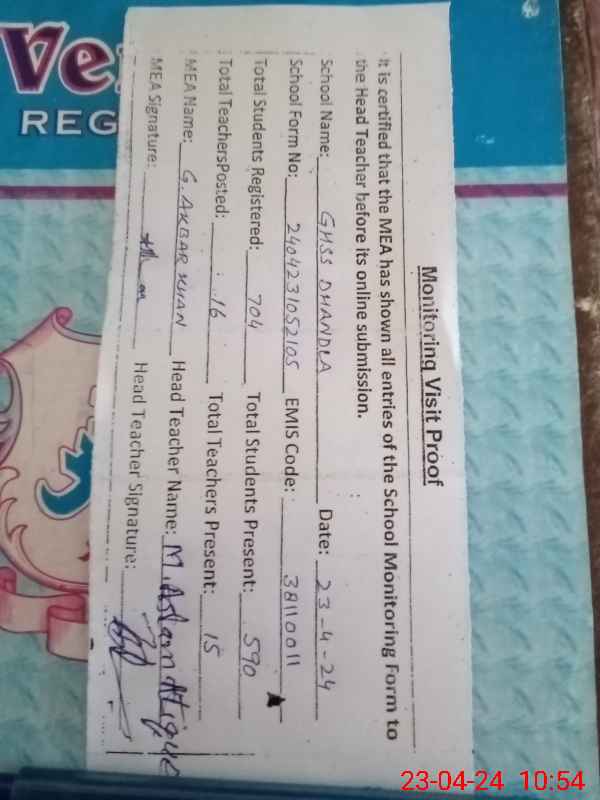 Ve
REG
Monitoring Visit Proof
It is certified that the MEA has shown all entries of the School Monitoring Form to
the Head Teacher before its online submission.
School Name: GHSS DHANDLA Date: 23-4-24
School Form No: 2404231052105 EMIS Code: 38110011
Total Students Registered: 704 Total Students Present: 590
Total TeachersPosted: 16 Total Teachers Present: 15
MEA Name: G. AKBAR KHAN Head Teacher Name: M. Aslam Atique
MEA Signature: Head Teacher Signature:
23-04-24 10:54